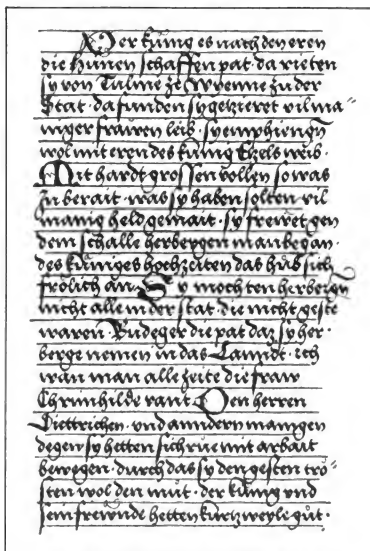 Der kunig es nach den eren
die Hunen schaffen pat · da rieten
sy von Tulme ze Wyenne zu der
Stat · da funden sy getzieret vil ma〃
niger frawen leib · sy emphiengn
wol mit eren des kunig Etzels weib ·
Mit hardt grossen vollen so was
In berait · was sy haben solten vil
manig held gemait · sy frewet gen
dem schalle herbergen man began ·
des kuniges hochzeiten das hub sich
frölich an · Sy mochten herbergn
nicht alle in der stat · die nicht geste
waren · Rudeger die pat daz sy her ·
berge nemen in das Lanndt · ich
wän man alle zeite die fraw
Chrimhilde vant · Den herren
Diettrichen · und anndern manigen
degen sy hetten sich rue mit arbait
bewegen · durch das sy den gesten trö〃
sten wol den mut · der kunig und
sein freunde hetten kurtzweyle gut ·